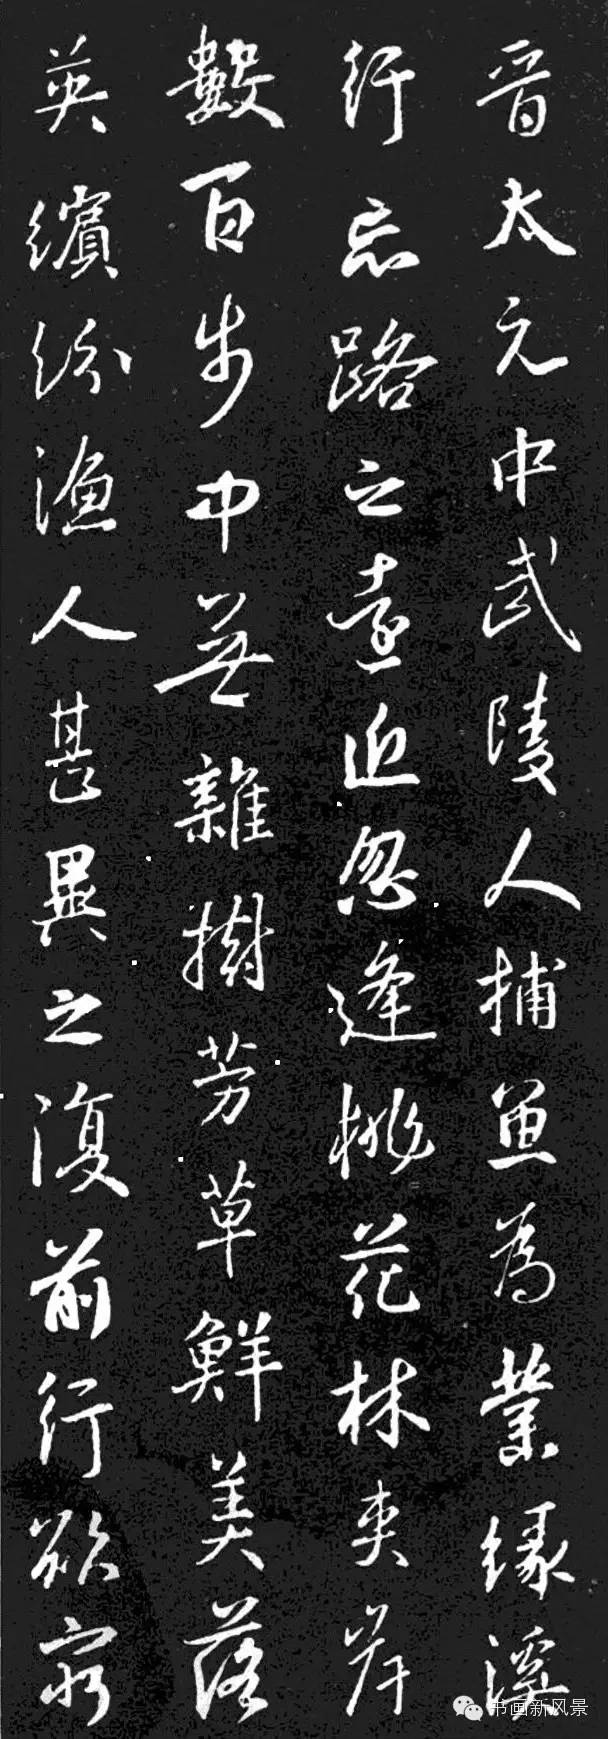 晋太元中武陵人捕鱼為業緣溪
行忘路之遠近忽逢桃花林夹岸
數百步中無雜樹芳草鮮美落
英繽紛漁人甚異之復前行欲窮
书画新风景